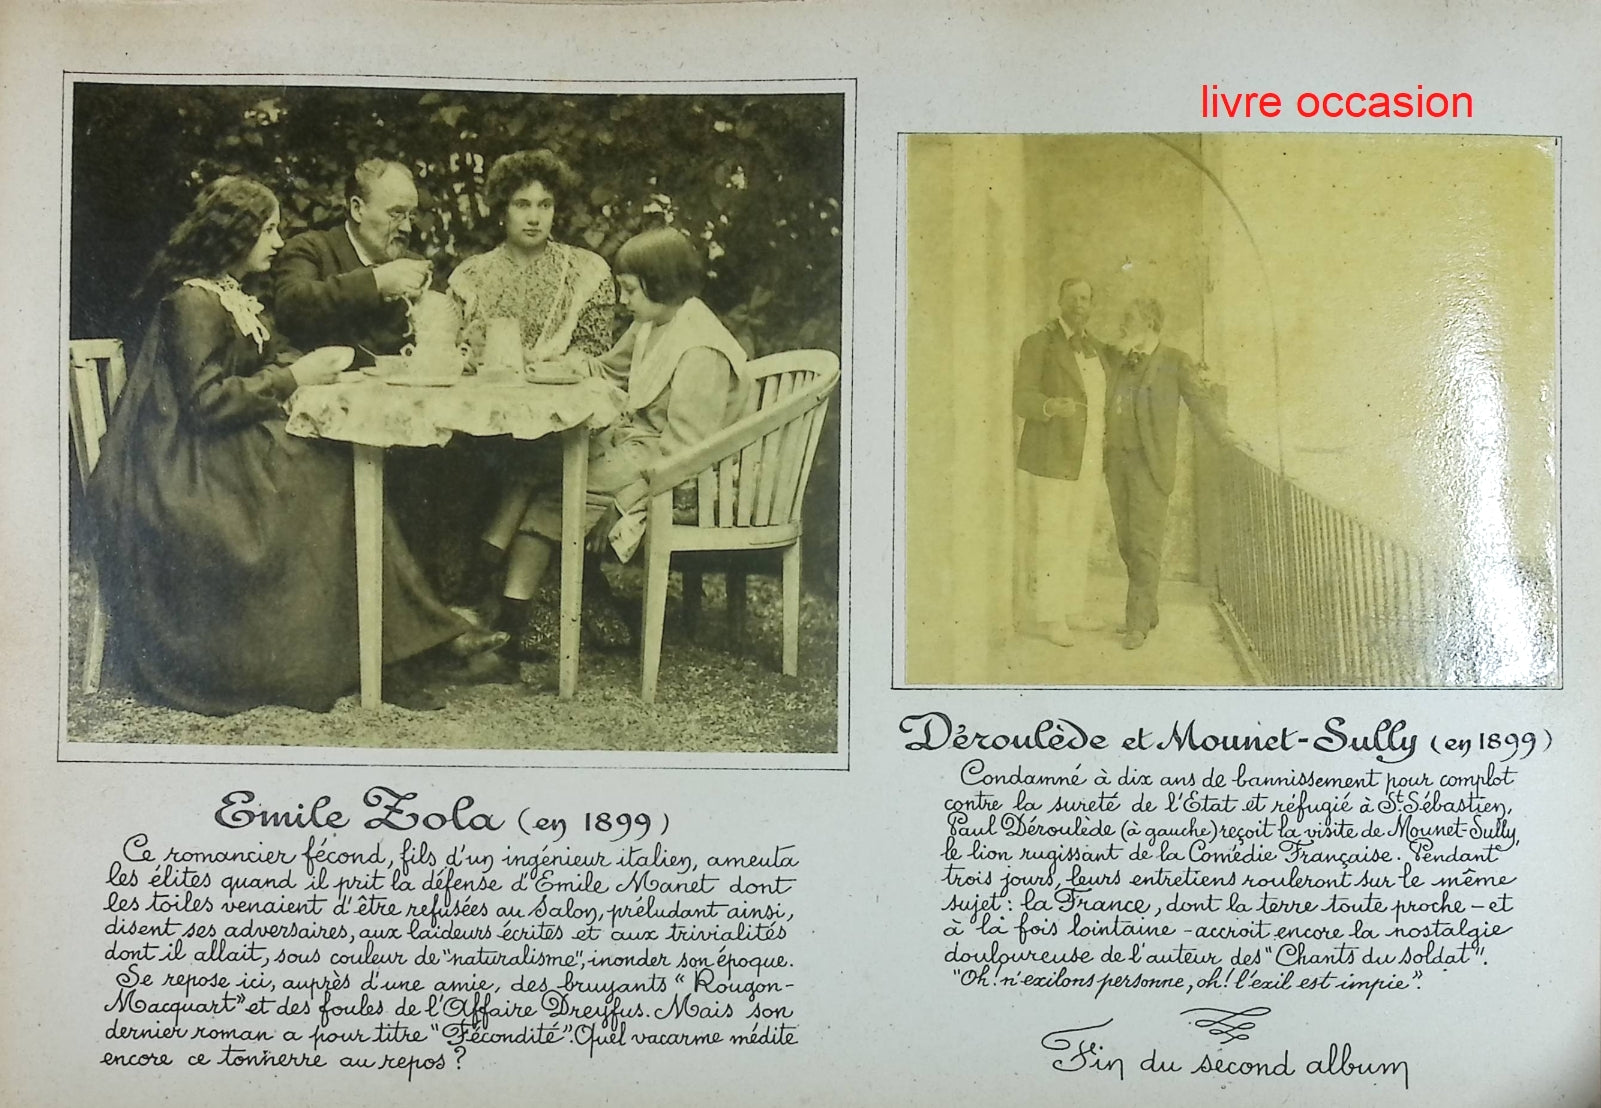 livre occasion
Emile Zola (en 1899)
Ce romancier fécond, fils d'un ingénieur italien, ameuta
les élites quand il prit la défense d'Emile Manet dont
les toiles venaient d'être refusées au Salon, préludant ainsi,
disent ses adversaires, aux laideurs écrites et aux trivialités
dont il allait, sous couleur de "naturalisme", inonder son époque.
Se repose ici, auprès d'une amie, des bruyants "Rougon-
Macquart" et des foules de l'Affaire Dreyfus. Mais son
dernier roman a pour titre "Fécondité". Quel vacarme médite
encore ce tonnerre au repos ?
Déroulède et Mounet-Sully (en 1899)
Condamné à dix ans de bannissement pour complot
contre la sureté de l'Etat et réfugié à St Sébastien,
Paul Déroulède (à gauche) reçoit la visite de Mounet-Sully,
le lion rugissant de la Comédie Française. Pendant
trois jours, leurs entretiens rouleront sur le même
sujet : la France, dont la terre toute proche - et
à la fois lointaine - accroit encore la nostalgie
douloureuse de l'auteur des "Chants du soldat".
"Oh! n'exilons personne, oh! l'exil est impie".
Fin du second album